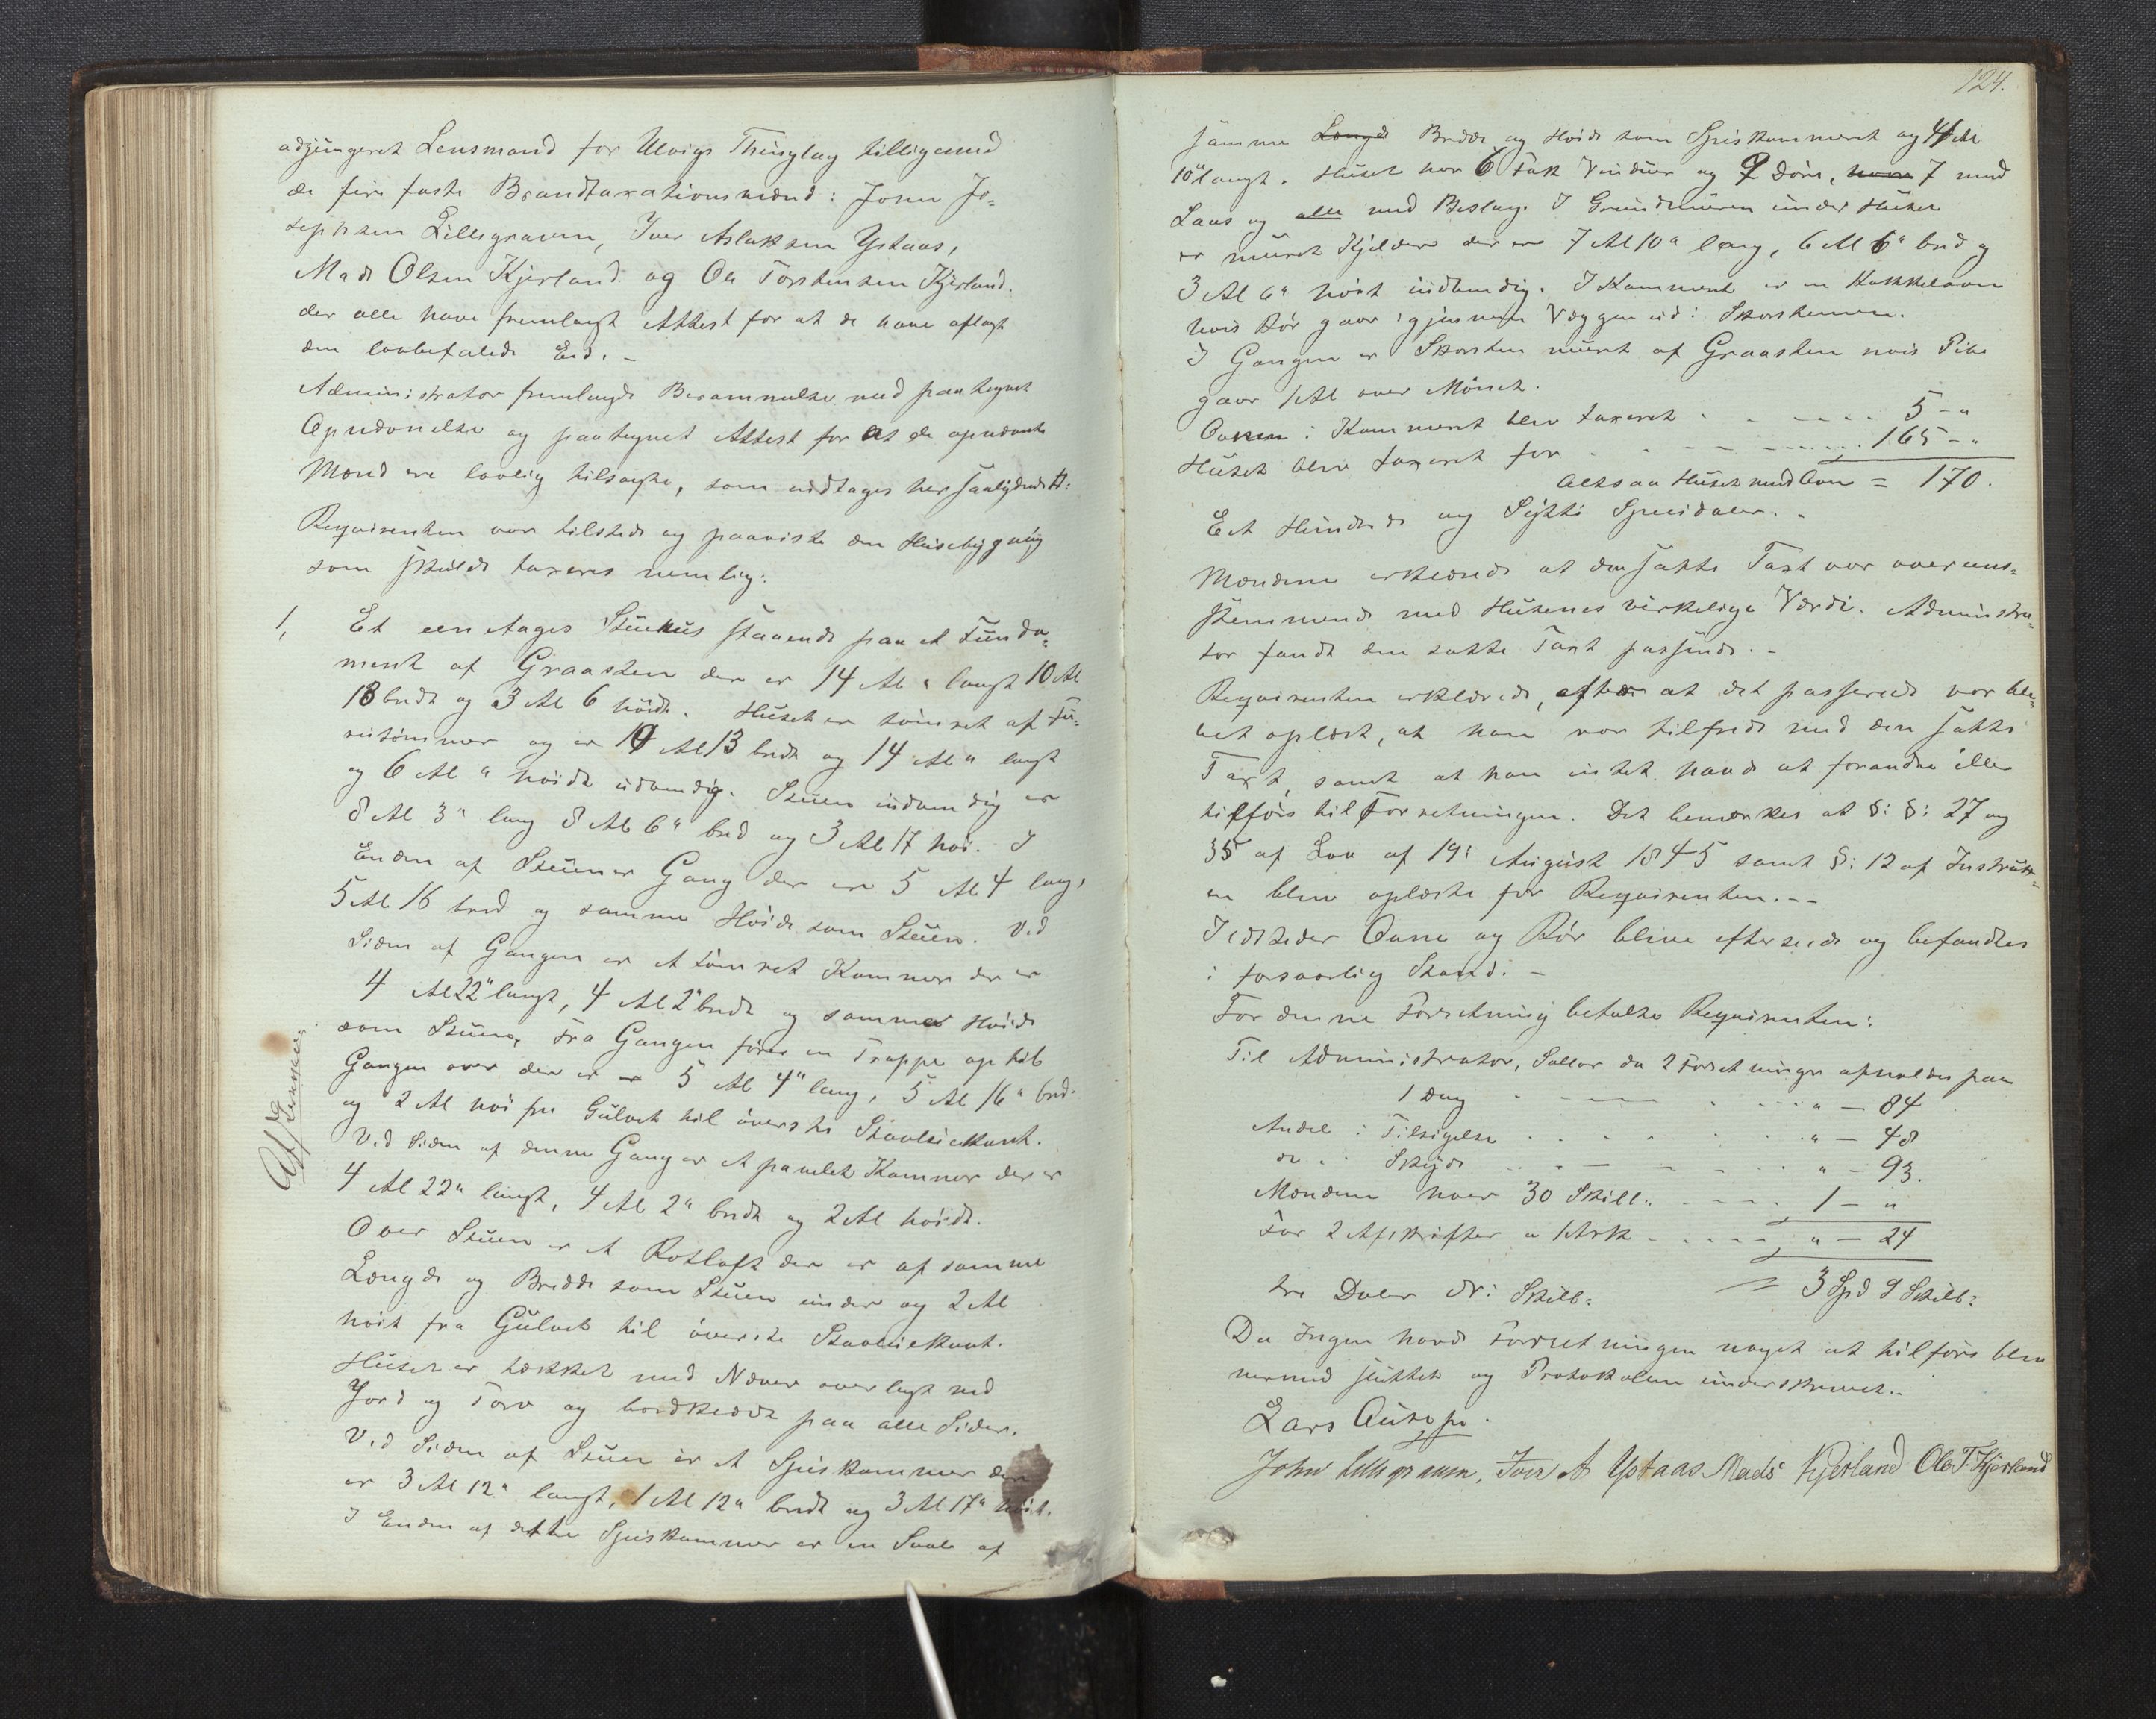 adjungeret Lensmand for Ulvigs Thinglag tilligemed
de fire faste Brandtaxationsmænd: John Jo-
sephsen Lillegraven, Iver Aslaksen Ystaas,
Mads Olsen Kjerland og Ole Torstensen Kjerland.
der alle have fremlagt Attest for at de have aflagt
den lovbefalede Eed. -
Administrator fremlagde Berammelse med paategnet
Opnævnelse og paategnet Attest for at de opnævnte
Mænd ere lovlig tilsagte, som indtages her saalydende
Requirenten var tilstede og paaviste den Huusebygning
som skulde taxeres nemlig:
1, Et een etages Stuehus staaende paa et Funda-
ment af Graasten der er 14 Al " langt 10 Al
18 bredt og 3 Al 6 höidt. Huset er tömret af Fu-
rutömmer og er 10 Al 13 bredt og 14 Al " langt
og 6 Al " höidt udvendig. Stuen indvendig er
8 Al 3" lang 8 Al 6" bred og 3 Al 17 höi. I
Enden af Stuen er Gang der er 5 Al 4 lang,
5 Al 16 bred og samme Höide som Stuen. Ved
Siden af Gangen er et tömret Kammer der er
4 Al 22" langt, 4 Al 2" bredt og samme Höide
som Stuen, Fra Gangen förer en Trappe op til
Gangen over der er 5 Al 4" lang, 5 Al 16" bred.
og 2 Al höi fra Gulvet til överste Stavleiekant.
Ved Siden af denne Gang er et panelet Kammer der er
4 Al 22" langt, 4 Al 2" bredt og 2 Al höidt.
Over Stuen er et Rotloft der er af samme
Længde og Bredde som Stuen under og 2 Al
höit fra Gulvet til överste Stavleiekant.
Huset er tækket med Næver overlagt med
Jord og Torv og bordklædt paa alle Sider.
Ved Siden af Stuen er et Spiskammer der
er 3 Al 12" langt, 1 Al 12" bredt og 3 Al 17" höit.
I Enden af dette Spiskammer er en Sval af
124.
samme Længde Bredde og Höide som Spiskammeret og 4 Al
10" langt. Huset har 6 Fak Vinduer og 9 Döre, 7 med
Laas og alle med Beslag. I Grundmuren under Huset
er muret Kjelder der er 7 Al 10" lang, 6 Al 6" bred og
3 Al 6" höit indvendig. I Kammeret er en Kakkelovn
hvis Rör gaar igjennem Væggen ud i Skorstenen.
I Gangen er Skorsten muret af Graasten hvis Pibe
gaar 1 Al over Mönet.
Ovnen i Kammeret blev taxeret . - - - - 5 - "
Huset blev taxeret for . . - - - - 165 - "
Altsaa Huset med Ovn = 170.
Eet Hundrede og Sytti Speidaler. -
Mændene erklærede at den satte Taxt var overens-
stemmende med Husenes virkelige Værdi. Administra-
tor fandt den satte Taxt passende. -
Requirenten erklærede, efter at det passerede var ble-
vet oplæst, at han var tilfreds med den satte
Taxt, samt at han intet havde at forandre eller
tilföie til Forretningen. Det bemærkes at §: §: 27 og
35 af Lov af 19: August 1845 samt §: 12 af Instrux-
en blev oplæste for Requirenten. - -
Ildsteder Ovne og Rör bleve efterseede og befandtes
i forsvarlig Stand. -
For denne Forretning betalte Requirenten:
Til Administrator, Sallar da 2 Forretninger afholdes paa
1 Dag . - - - . . . " - 84
Andel i Tilsigelse . . . . . . " - 48
do. i Skyds . . - - - . . " - 93.
Mændene hver 30 Skill. - - - - 1 - "
For 2 Afskrifter a 1 Ark - - - - " - 24
tre Daler Ni Skill: = 3 Spd 9 Skill:
Da Ingen havde Forretningen noget at tilföre blev
hermed sluttet og Protokolen underskrevet. -
Lars
John Lillegraven, Iver A Ystaas Mads Kjerland Ole T. Kjerland